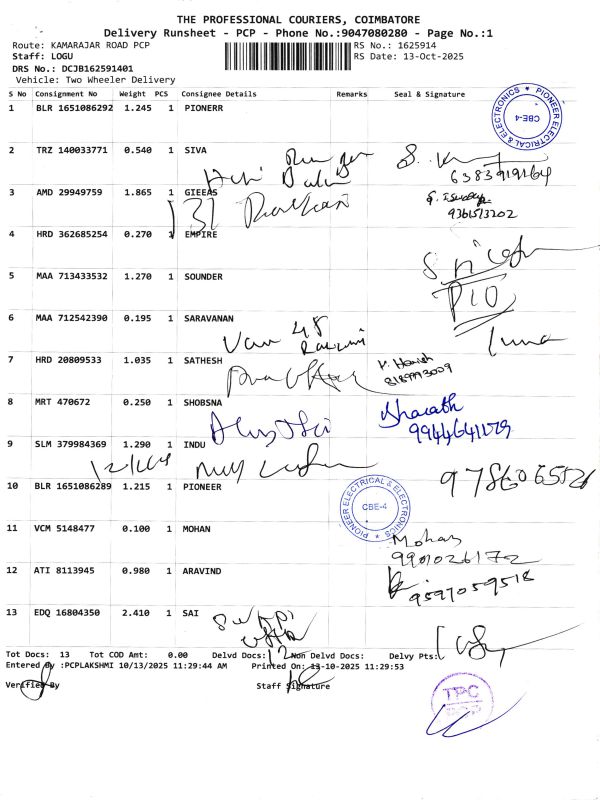 THE PROFESSIONAL COURIERS, COIMBATORE
Delivery Runsheet - PCP - Phone No.:9047080280 - Page No.:1
Route: KAMARAJAR ROAD PCP
RS No.: 1625914
Staff: LOGU
RS Date: 13-Oct-2025
DRS No.: DCJB162591401
Vehicle: Two Wheeler Delivery
S No Consignment No Weight PCS Consignee Details Remarks Seal & Signature
1 BLR 1651086292 1.245 1 PIONERR
PIONEER ELECTRICAL & ELECTRONICS
CBE-4
2 TRZ 140033771 0.540 1 SIVA
6383919164
3 AMD 29949759 1.865 1 GIEEAS
131
9361513202
4 HRD 362685254 0.270 1 EMPIRE
5 MAA 713433532 1.270 1 SOUNDER
6 MAA 712542390 0.195 1 SARAVANAN
7 HRD 20809533 1.035 1 SATHESH
8189993009
8 MRT 470672 0.250 1 SHOBSNA
Bharath
9 SLM 379984369 1.290 1 INDU
10 BLR 1651086289 1.215 1 PIONEER
PIONEER ELECTRICAL & ELECTRONICS
CBE-4
11 VCM 5148477 0.100 1 MOHAN
Mohan
9901026172
12 ATI 8113945 0.980 1 ARAVIND
9597059518
13 EDQ 16804350 2.410 1 SAI
Tot Docs: 13 Tot COD Amt: 0.00 Delvd Docs: 12 Non Delvd Docs: Delvy Pts:
Entered By :PCPLAKSHMI 10/13/2025 11:29:44 AM Printed On: 13-10-2025 11:29:53
Verified By Staff Signature
TPC